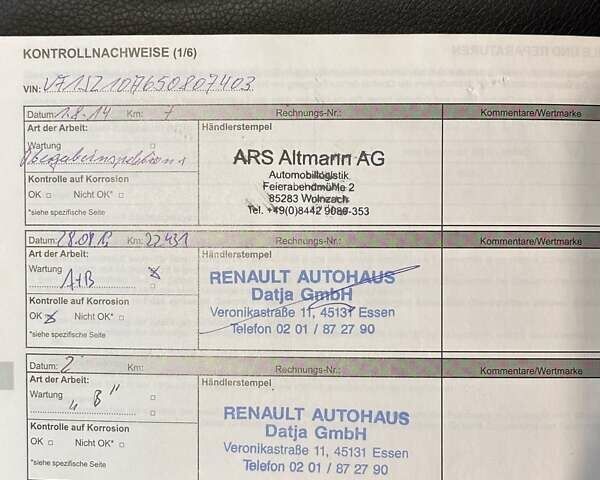 KONTROLLNACHWEISE (1/6)
VIN:
Datum: 1.8.14 Km: 7 Rechnungs-Nr.: Kommentare/Wertmarke
Art der Arbeit: Händlerstempel
Wartung
Übergabeinspektion
ARS Altmann AG
Automobillogistik
Feierabendmühle 2
85283 Wolnzach
Tel. +49(0)8442 9086-353
Kontrolle auf Korrosion
OK Nicht OK*
*siehe spezifische Seite
Datum: Km: 22431 Rechnungs-Nr.: Kommentare/Wertmarke
Art der Arbeit: Händlerstempel
Wartung
A+B
RENAULT AUTOHAUS
Datja GmbH
Veronikastraße 11, 45131 Essen
Telefon 02 01 / 87 27 90
Kontrolle auf Korrosion
OK Nicht OK*
*siehe spezifische Seite
Datum: Km: Rechnungs-Nr.: Kommentare/Wertmarke
Art der Arbeit: Händlerstempel
Wartung „B"
RENAULT AUTOHAUS
Datja GmbH
Veronikastraße 11, 45131 Essen
Telefon 02 01 / 87 27 90
Kontrolle auf Korrosion
OK Nicht OK*
*siehe spezifische Seite